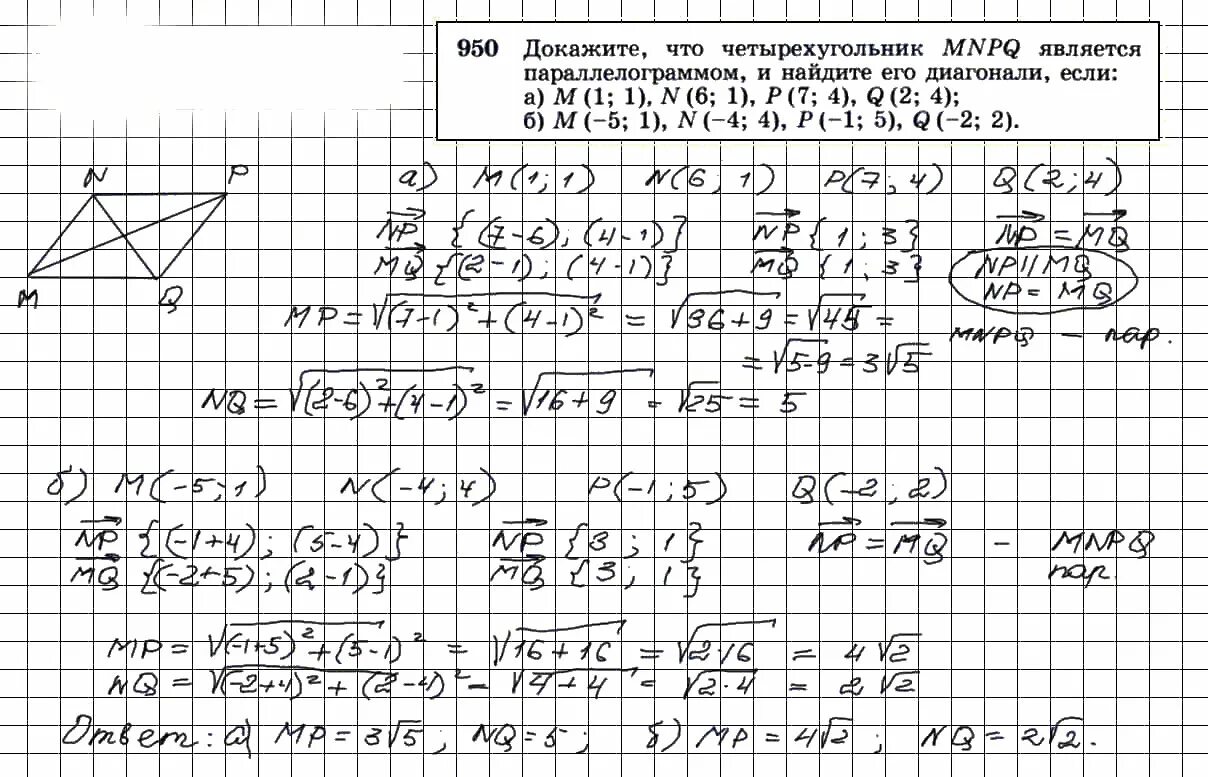 950 Докажите, что четырехугольник MNPQ является
параллелограммом, и найдите его диагонали, если:
а) M (1; 1), N (6; 1), P (7; 4), Q (2; 4);
б) M (−5; 1), N (−4; 4), P (−1; 5), Q (−2; 2).
N P
M Q
а) M(1; 1) N(6; 1) P(7; 4) Q(2; 4)
NP {(7-6); (4-1)} NP {1; 3} NP = MQ
MQ {(2-1); (4-1)} MQ {1; 3} NP || MQ
NP = MQ
MP = √(7-1)² + (4-1)² = √36+9 = √45 =
MNPQ – пар.
= √5·9 = 3√5
NQ = √(2-6)² + (4-1)² = √16+9 = √25 = 5
б) M(-5; 1) N(-4; 4) P(-1; 5) Q(-2; 2)
NP {(-1+4); (5-4)} NP {3; 1} NP = MQ – MNPQ
MQ {(-2+5); (2-1)} MQ {3; 1} пар.
MP = √(-1+5)² + (5-1)² = √16+16 = √2·16 = 4√2
NQ = √(-2+4)² + (2-4)² = √4+4 = √2·4 = 2√2
Ответ: а) MP = 3√5; NQ = 5; б) MP = 4√2; NQ = 2√2.